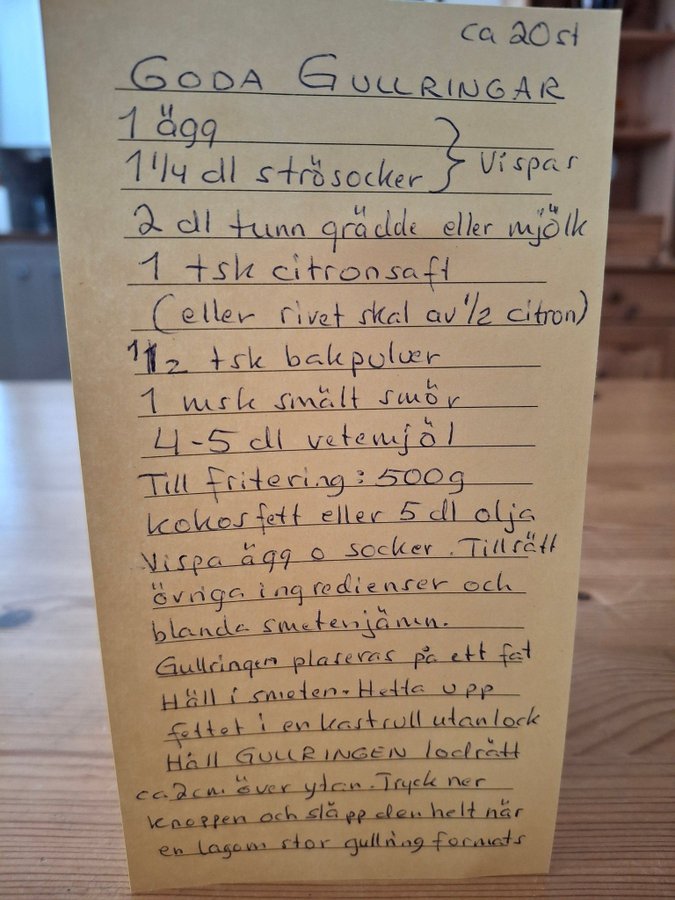 ca 20st
GODA GULLRINGAR
1 ägg
1 1/4 dl strösocker } Vispas
2 dl tunn grädde eller mjölk
1 tsk citronsaft
(eller rivet skal av 1/2 citron)
1 1/2 tsk bakpulver
1 msk smält smör
4-5 dl vetemjöl
Till fritering: 500g
kokosfett eller 5 dl olja
Vispa ägg o socker. Tillsätt
övriga ingredienser och
blanda smeten jämn.
Gullringen plaseras på ett fat
Häll i smeten. Hetta upp
fettet i en kastrull utan lock
Håll GULLRINGEN lodrätt
ca 2cm över ytan. Tryck ner
knoppen och släpp den helt när
en lagom stor gullring formats